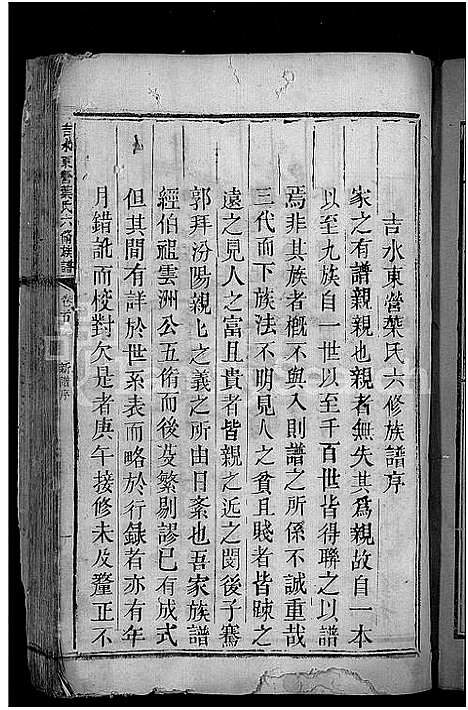 吉水東營葉氏六修族譜序
家之有譜親親也親者無失其爲親故自一本
以至九族自一世以至千百世皆得聯之以譜
焉非其族者槪不與入則譜之所係不誠重哉
三代而下族法不明見人之貧且賤者皆踈之
遠之見人之富且貴者皆親之近之閔後子騫
郭拜汾陽親親之義之所由日紊也吾家族譜
經伯祖雲洲公五脩而後芟繁剔謬已有成式
但其間有詳於世系表而略於行録者亦有年
月錯訛而校對欠是者庚午接修未及釐正不
吉水東營葉氏六脩族譜
卷首
新譜序
一